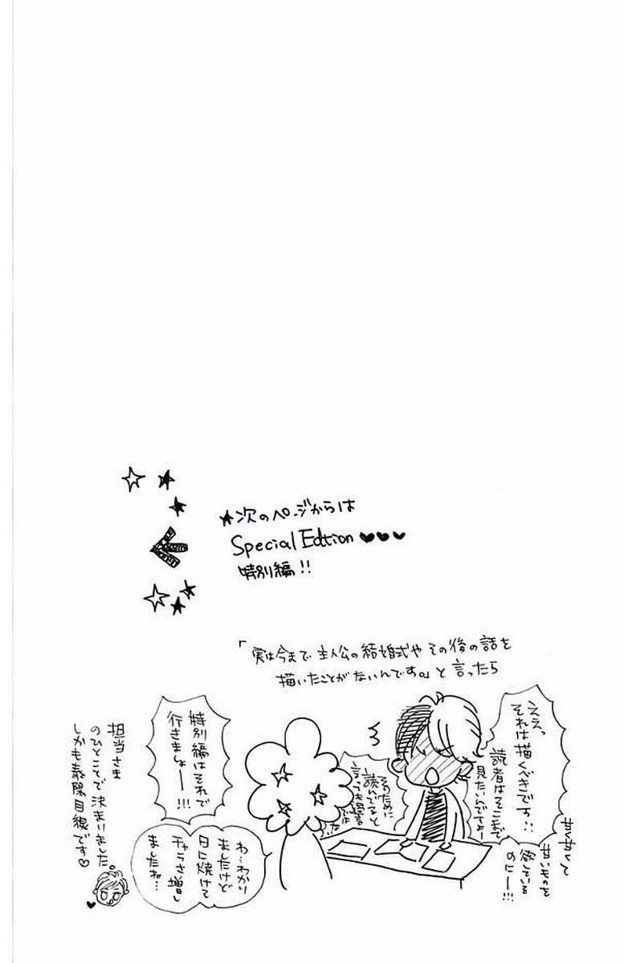 ★次のページからは
Special Edition
特別編!!
「実は今まで主人公の結婚式やその後の話を
描いたことがないんです。」と言ったら
ええっ
それは描くべきです!!
読者はそこまで
見たいんですよー
甘くて甘くて
甘いものを
欲している
のにー!!!
そのために
読んでると
言っても過言
では
特別編はそれで
行きましょーー!!!
わ…わかり
ましたけど
日に焼けて
チャラさ増し
ましたね…
担当さま
のひとことで決まりました
しかも義隆目線です♡